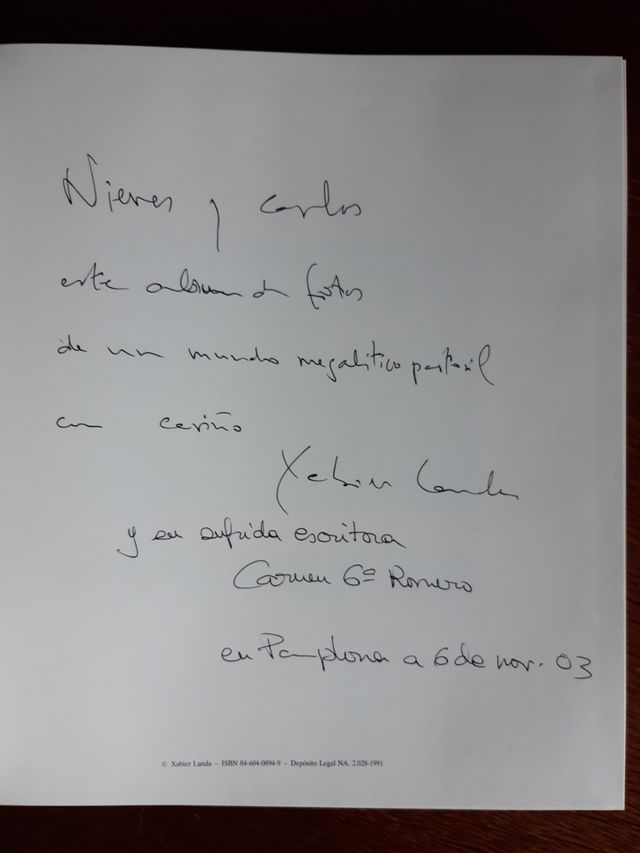 Nieves y Carlos
este album de fotos
de un mundo megalitico pastoril
con cariño
Xabier Landa
y su sufrida escritora
Carmen Gª Romero
en Pamplona a 6 de nov. 03
© Xabier Landa – ISBN 84-604-0894-9 – Depósito Legal NA. 2.028-1991